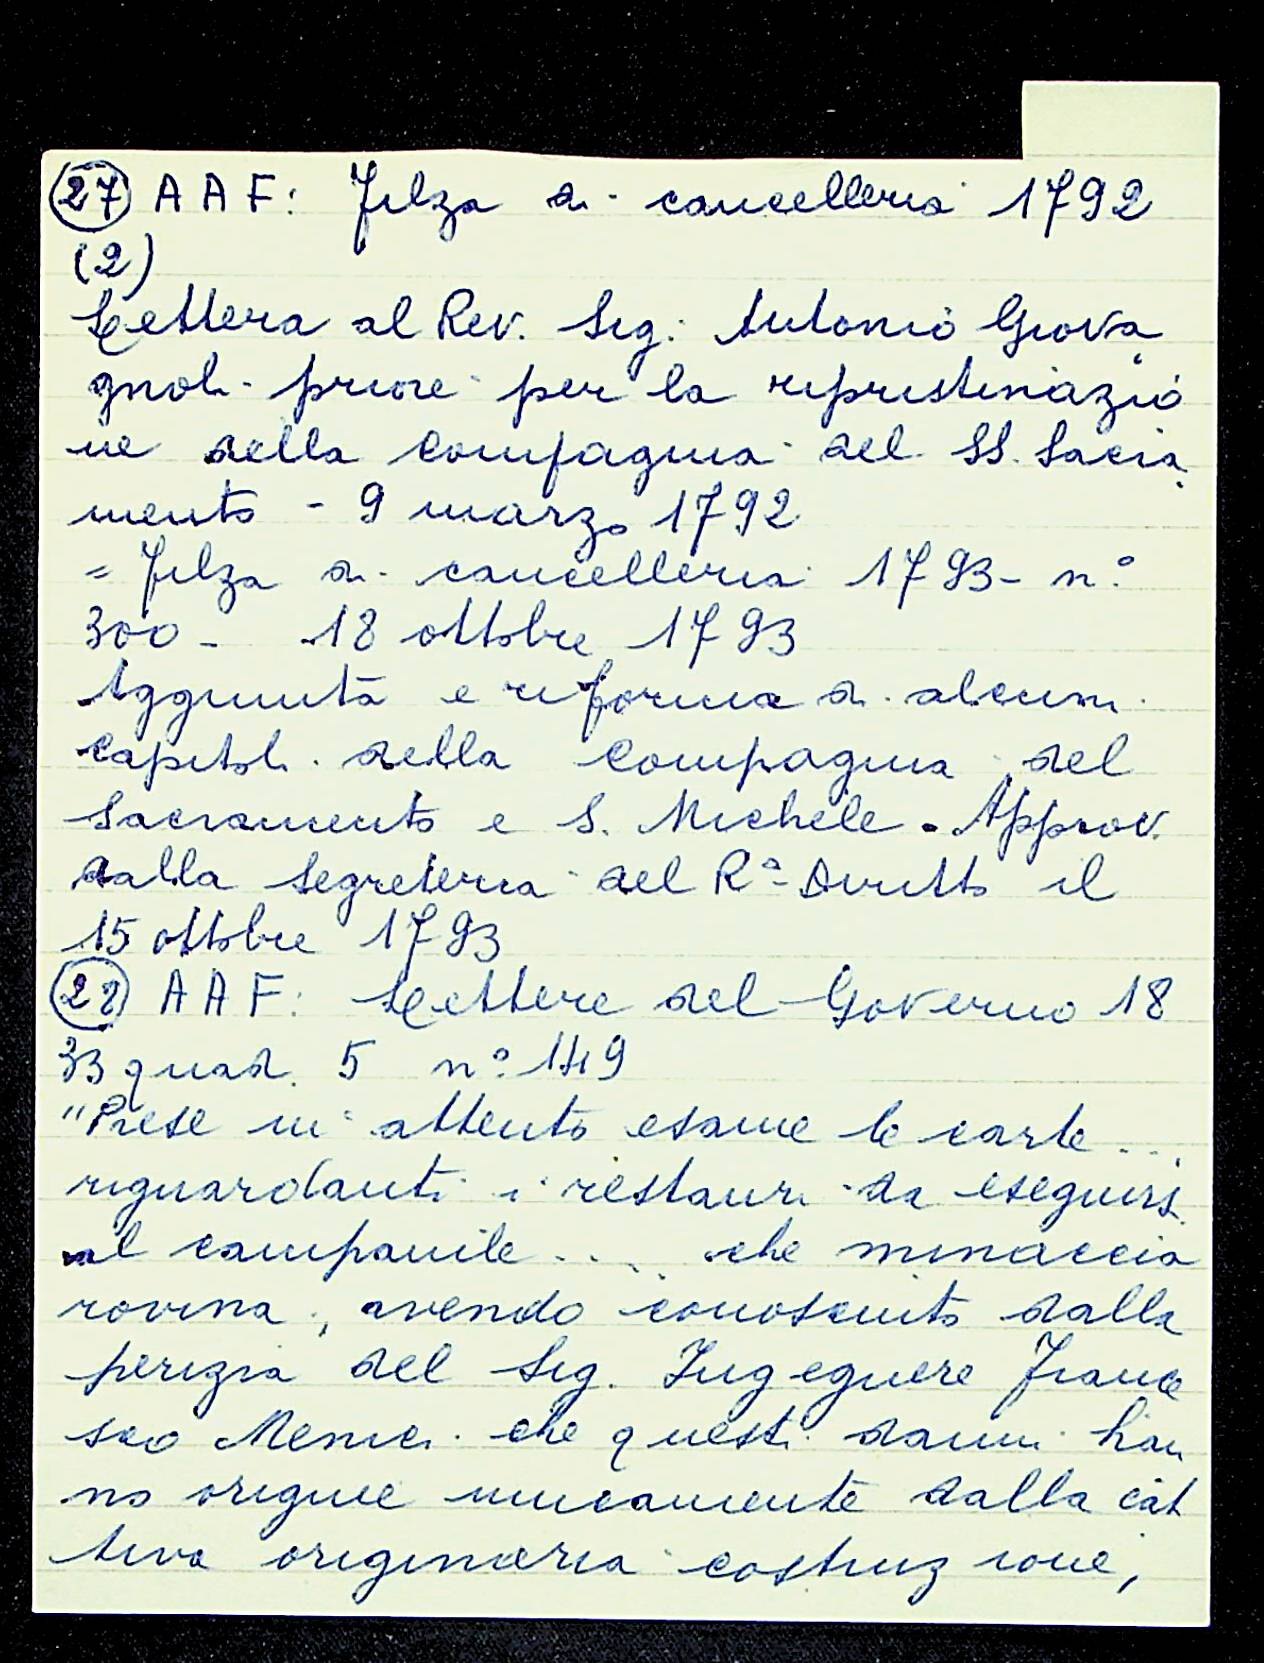 27 AAF: Filza di cancelleria 1792
(2)
Lettera al Rev. Sig. Antonio Giova
gnoli priore per la ripristinazio
ne della Compagnia del SS. Sacra
mento - 9 marzo 1792
= Filza di cancelleria 1793 - n°
300 - 18 ottobre 1793
Aggiunta e riforma di alcuni
capitoli della Compagnia del
Sacramento e S. Michele. Approv.
dalla Segreteria del R° Diritto il
15 ottobre 1793
28 AAF: Lettere del Governo 18
33 quad. 5 n° 149
"Prese in attento esame le carte ...
riguardanti i restauri da eseguirsi
al campanile .... che minaccia
rovina, avendo conosciuto dalla
perizia del Sig. Ingegnere France
sco Menici che questi danni han
no origine unicamente dalla cat
tiva originaria costruzione,